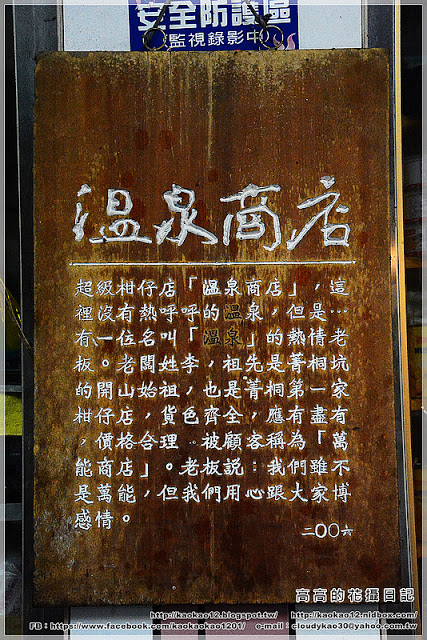 安全防護區
監視錄影中
溫泉商店
超級柑仔店「溫泉商店」，這
裡沒有熱呼呼的溫泉，但是…
有一位名叫「溫泉」的熱情老
板。老闆姓李，祖先是菁桐坑
的開山始祖，也是菁桐第一家
柑仔店，貨色齊全，應有盡有
，價格合理，被顧客稱為「萬
能商店」。老板說：我們雖不
是萬能，但我們用心跟大家博
感情。
二〇〇六
高高的花攝日記
http://kaokao12.blogspot.tw/ http://kaokao12.nidbox.com/
FB：https://www.facebook.com/kaokaokao1201/ e-mail：cloudykao30@yahoo.com.tw